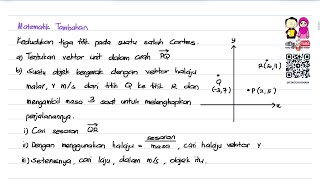 Matematik Tambahan
Kedudukan tiga titik pada suatu satah Cartes.
a) Tentukan vektor unit dalam arah PQ
b) Suatu objek bergerak dengan vektor halaju
malar, r m/s dari titik Q ke titik R dan
mengambil masa 3 saat untuk melengkapkan
perjalanannya.
i) Cari sesaran QR
ii) Dengan menggunakan halaju = sesaran/masa, cari halaju vektor r
iii) Seterusnya, cari laju, dalam m/s, objek itu.
y
R(2,11)
Q
(-2,7)
P(2,5)
x